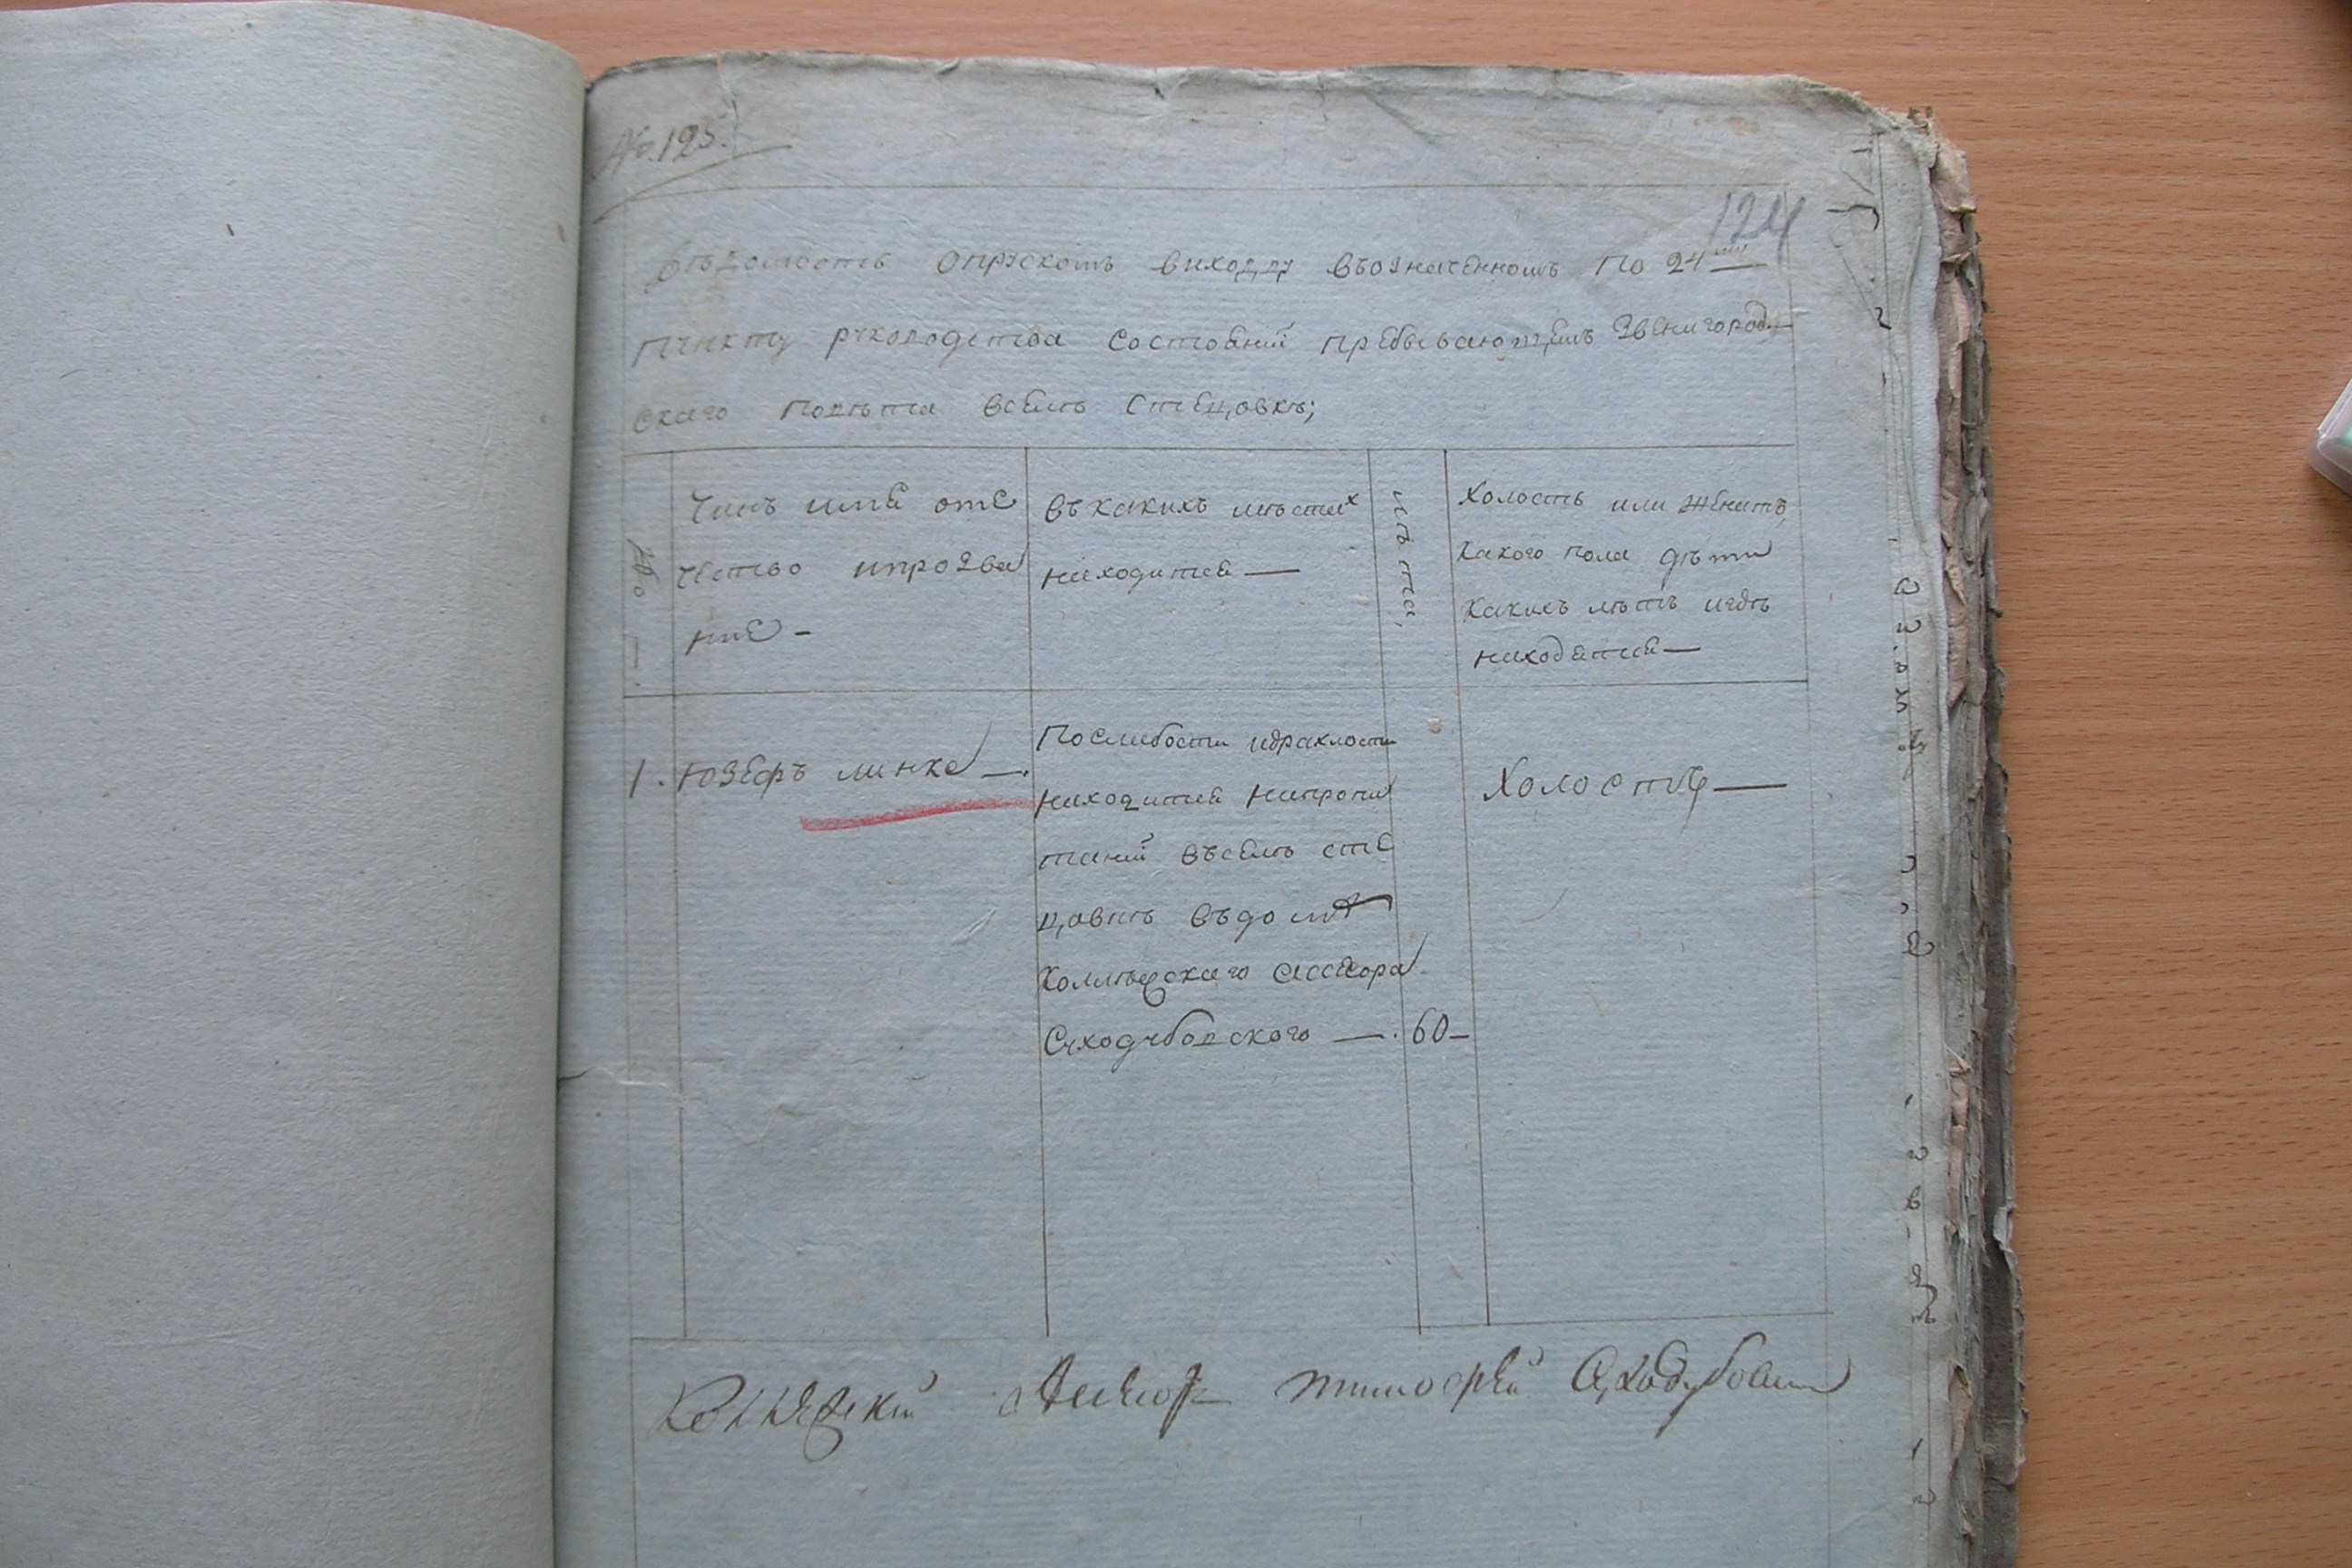 № 125.
124
Вѣдомость опрускомъ виходцу въозначенномъ по 24му
пункту руководства состояний пребывающемъ Звенигород-
скаго повѣта вселѣ Стецовкѣ;
№
Чинъ имя оте
чество ипрозва
ние —
въкакихъ мѣстах
находится —
лѣта,
Холостъ или женатъ,
какого пола дѣти
какихъ лѣтъ игдѣ
находятся —
1. Юзефъ линка —.
Послабости идрахлости
находится напропи
таний въселѣ сте
цовкѣ въдомѣ
Коллѣжскаго асесора
Суходубовского —. 60 —
Холостъ —
асесоръ тимофей Суходубовски